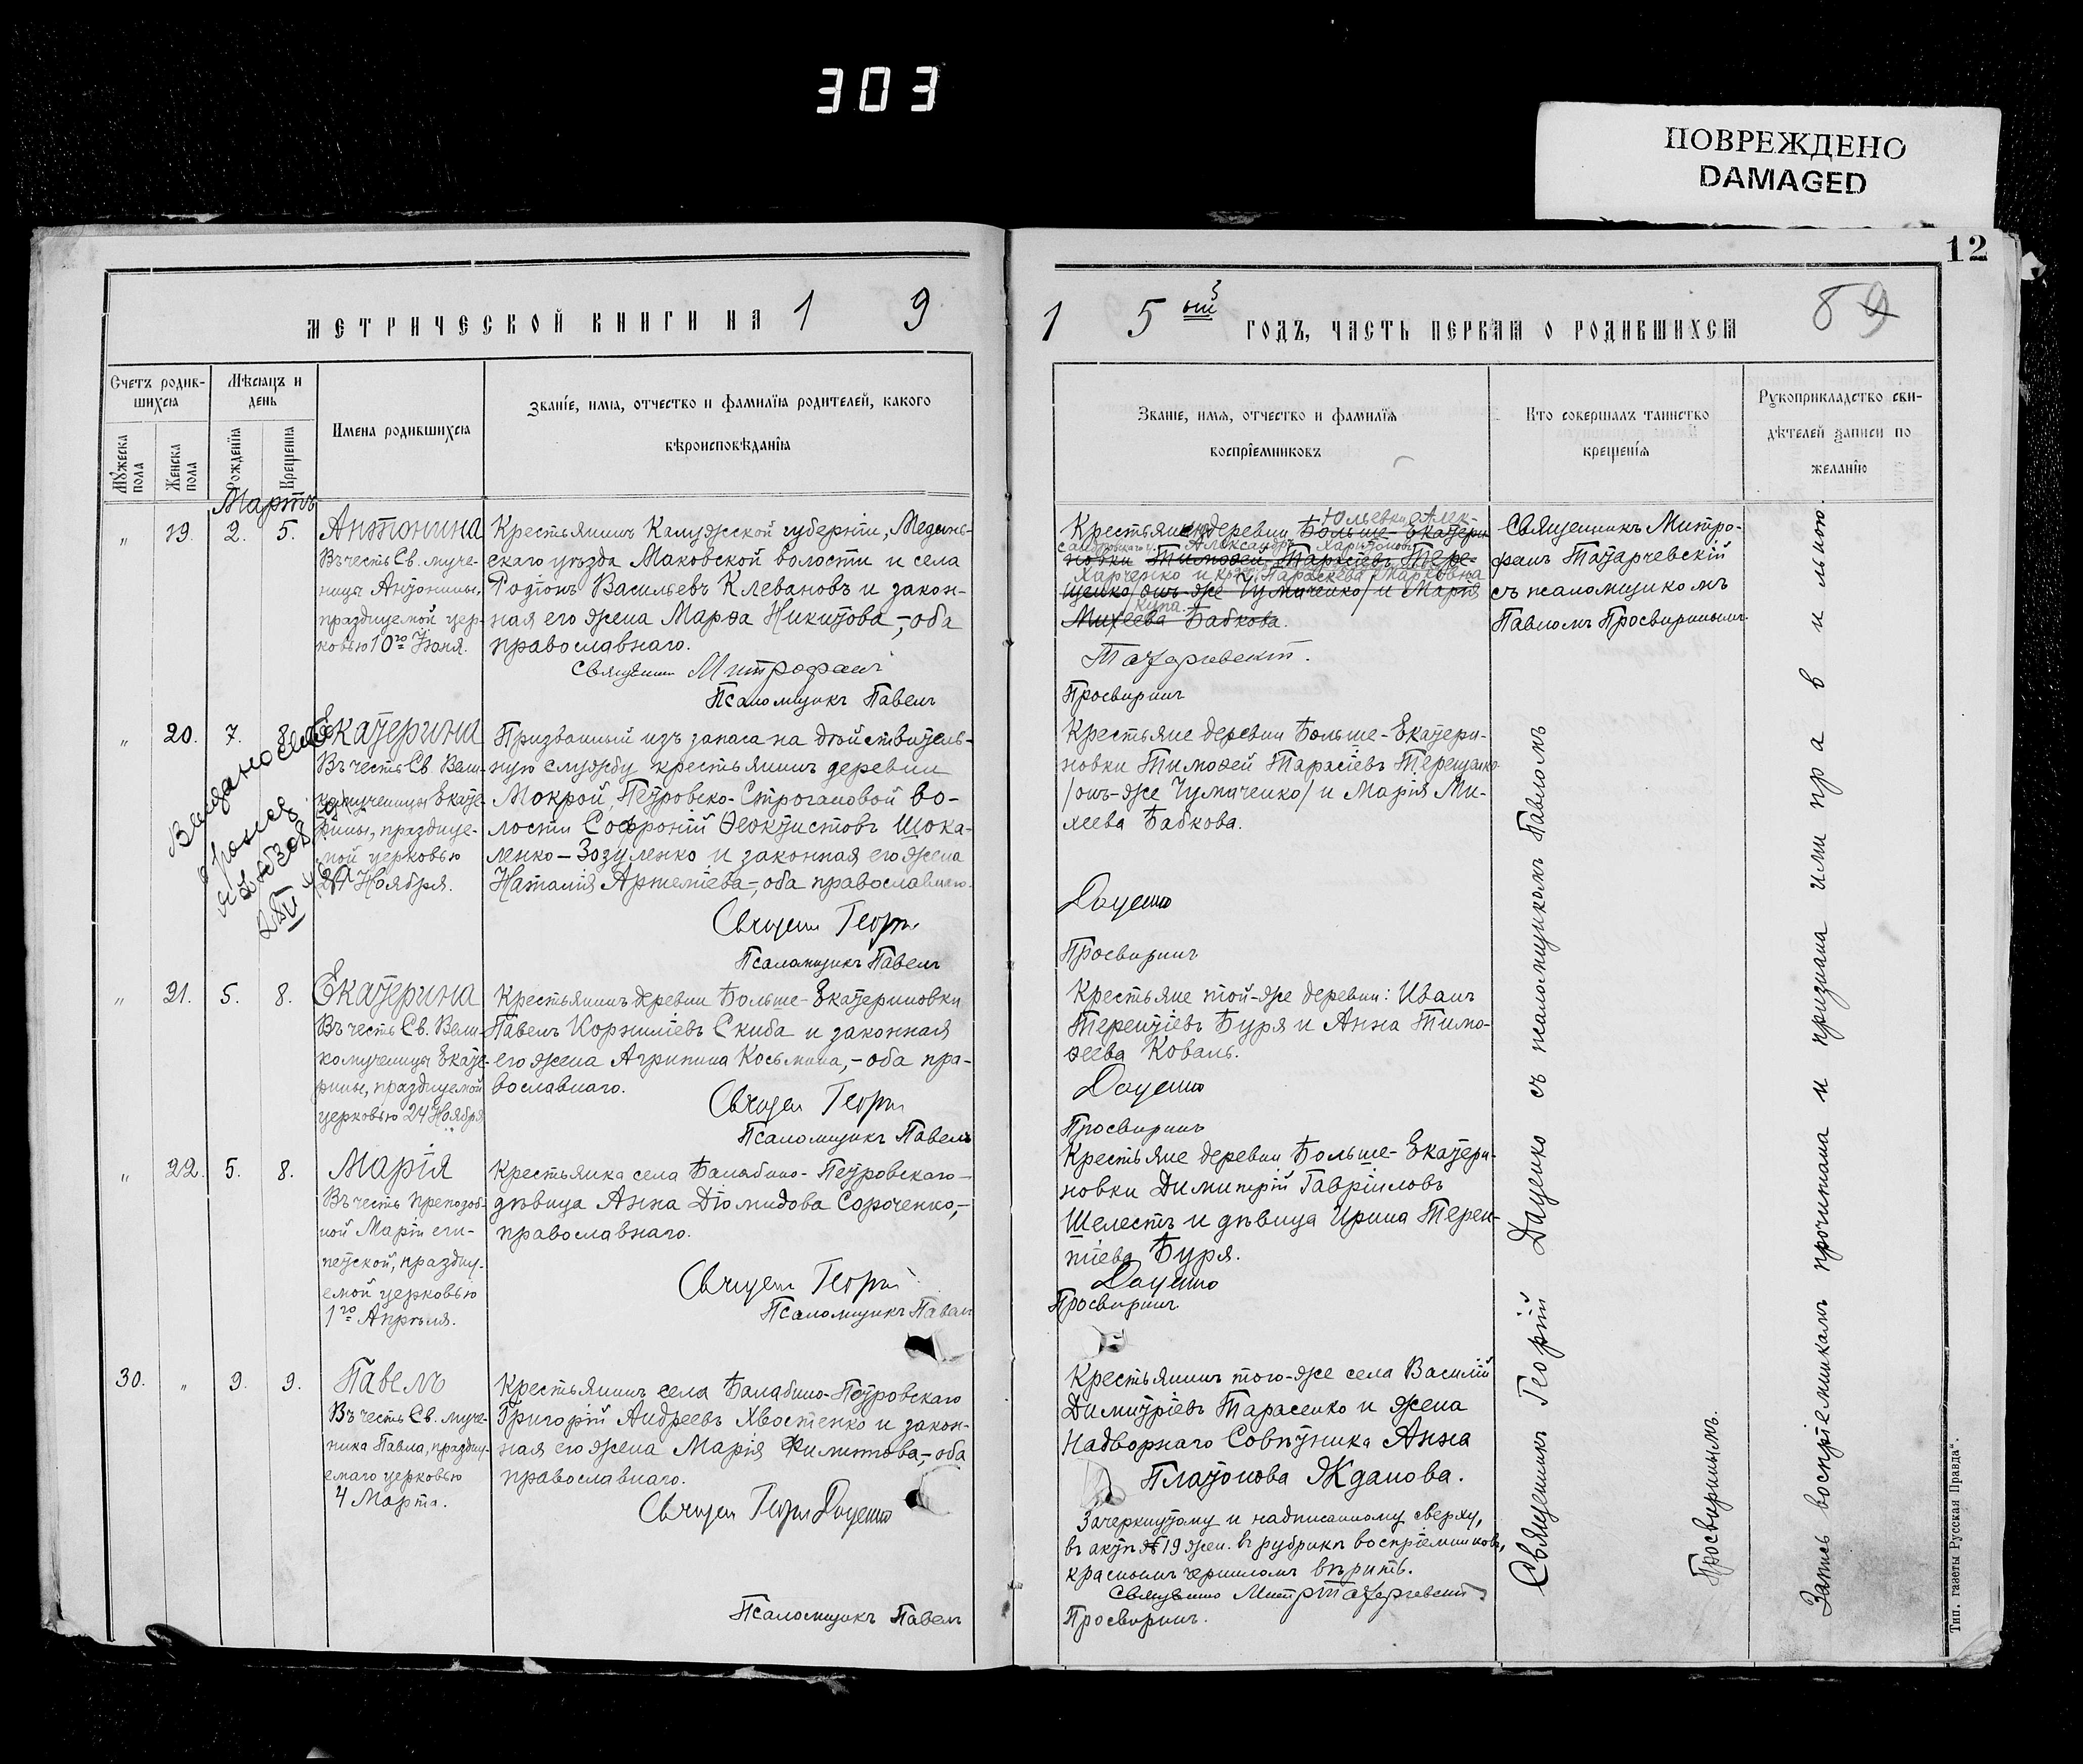 303
ПОВРЕЖДЕНО
DAMAGED
12
МЕТРИЧЕСКОЙ КНИГИ НА 1 9
1 5 ый ГОДЪ, ЧАСТЬ ПЕРВАЯ О РОДИВШИХСЯ
89
Счетъ родив-
шихся
Мѣсяцъ и
день
Мужеска пола
Женска пола
Рожденія
Крещенія
Имена родившихся
Званіе, имя, отчество и фамилія родителей, какого
вѣроисповѣданія
Званіе, имя, отчество и фамилія
воспріемниковъ
Кто совершалъ таинство
крещенія
Рукоприкладство сви-
дѣтелей записи по
желанію
Мартъ
" 19. 2. 5. Антонина
Въ честь Св. муче-
ницы Антонины,
празднуемой цер-
ковью 10го Іюня.
Крестьянинъ Калужской губерніи, Медынь-
скаго уѣзда Маковской волости и села
Родіонъ Васильевъ Клевановъ и закон-
ная его жена Марѳа Никитова,- оба
православнаго.
Священникъ Митрофанъ
Псаломщикъ Павелъ
Юльевки Алек-
Крестьяне деревни Больше-Екатери-
Александръ Харитоновъ
новки Тимоѳей Тарасіевъ Тере-
Харченко и Параскева Марковна
щенко /онъ-же Чумаченко/ и Марія
Михеева Бабкова.
Татарчевскій.
Просвиринъ
Священникъ Митро-
фанъ Татарчевскій
съ псаломщикомъ
Павломъ Просвиринымъ.
" 20. 7. 8. Екатерина
Въ честь Св. Вели-
комученицы Екате-
рины, праздnuе-
мой церковью
24 Ноября.
Призванный изъ запаса на дѣйствитель-
ную службу крестьянинъ деревни
Мокрой, Петровско-Строгановой во-
лости Софроній Ѳеоктистовъ Шока-
ленко-Зозуленко и законная его жена
Наталія Артеміева-, оба православнаго.
Священ Георгій
Псаломщикъ Павелъ
Крестьяне деревни Больше-Екатери-
новки Тимоѳей Тарасіевъ Терещенко
/онъ-же Чумаченко/ и Марія Ми-
хеева Бабкова.
Даценко
Просвиринъ
" 21. 5. 8. Екатерина
Въ честь Св. Вели-
комученицы Екате-
рины, празднуемой
церковью 24 Ноября
Крестьянинъ деревни Больше-Екатериновки
Павелъ Корниліевъ Скиба и законная
его жена Агрипина Косьмина,- оба пра-
вославнаго.
Священ Георгій
Псаломщикъ Павелъ
Крестьяне той-же деревни: Иванъ
Терентіевъ Буря и Анна Тимо-
ѳеева Коваль.
Даценко
Просвиринъ
" 22. 5. 8. Марія
Въ честь преподоб-
ной Маріи еги-
петской, праздну-
емой церковью
1го Апрѣля.
Крестьянка села Балабино-Петровскаго-
дѣвица Анна Діомидова Сороченко,-
православнаго.
Священ Георгій
Псаломщикъ Павелъ
Крестьяне деревни Больше-Екатери-
новки Димитрій Гавріиловъ
Шелестъ и дѣвица Ирина Терен-
тіева Буря.
Даценко
Просвиринъ
30. " 9. 9. Павелъ
Въ честь Св. муче-
ника Павла, праздну-
емаго церковью
4 Марта.
Крестьянинъ села Балабино-Петровскаго
Григорій Андреевъ Хвостенко и закон-
ная его жена Марія Филиппова,- оба
православнаго.
Священ Георгій Даценко
Псаломщикъ Павелъ
Крестьянинъ того-же села Василій
Димитріевъ Тарасенко и жена
Надворнаго Совѣтника Анна
Платонова Жданова.
Зачеркнутому и надписанному сверху,
въ актѣ № 19 жен. въ рубрикѣ воспріемниковъ,
красными чернилами вѣрить.
Священник Митр Татарчевскій
Просвиринъ.
Священникъ Георгій Даценко съ псаломщикомъ Павломъ
Просвиринымъ.
Запись воспріемникамъ прочитана и признана ими правильною.
Тип. газеты „Русская Правда".